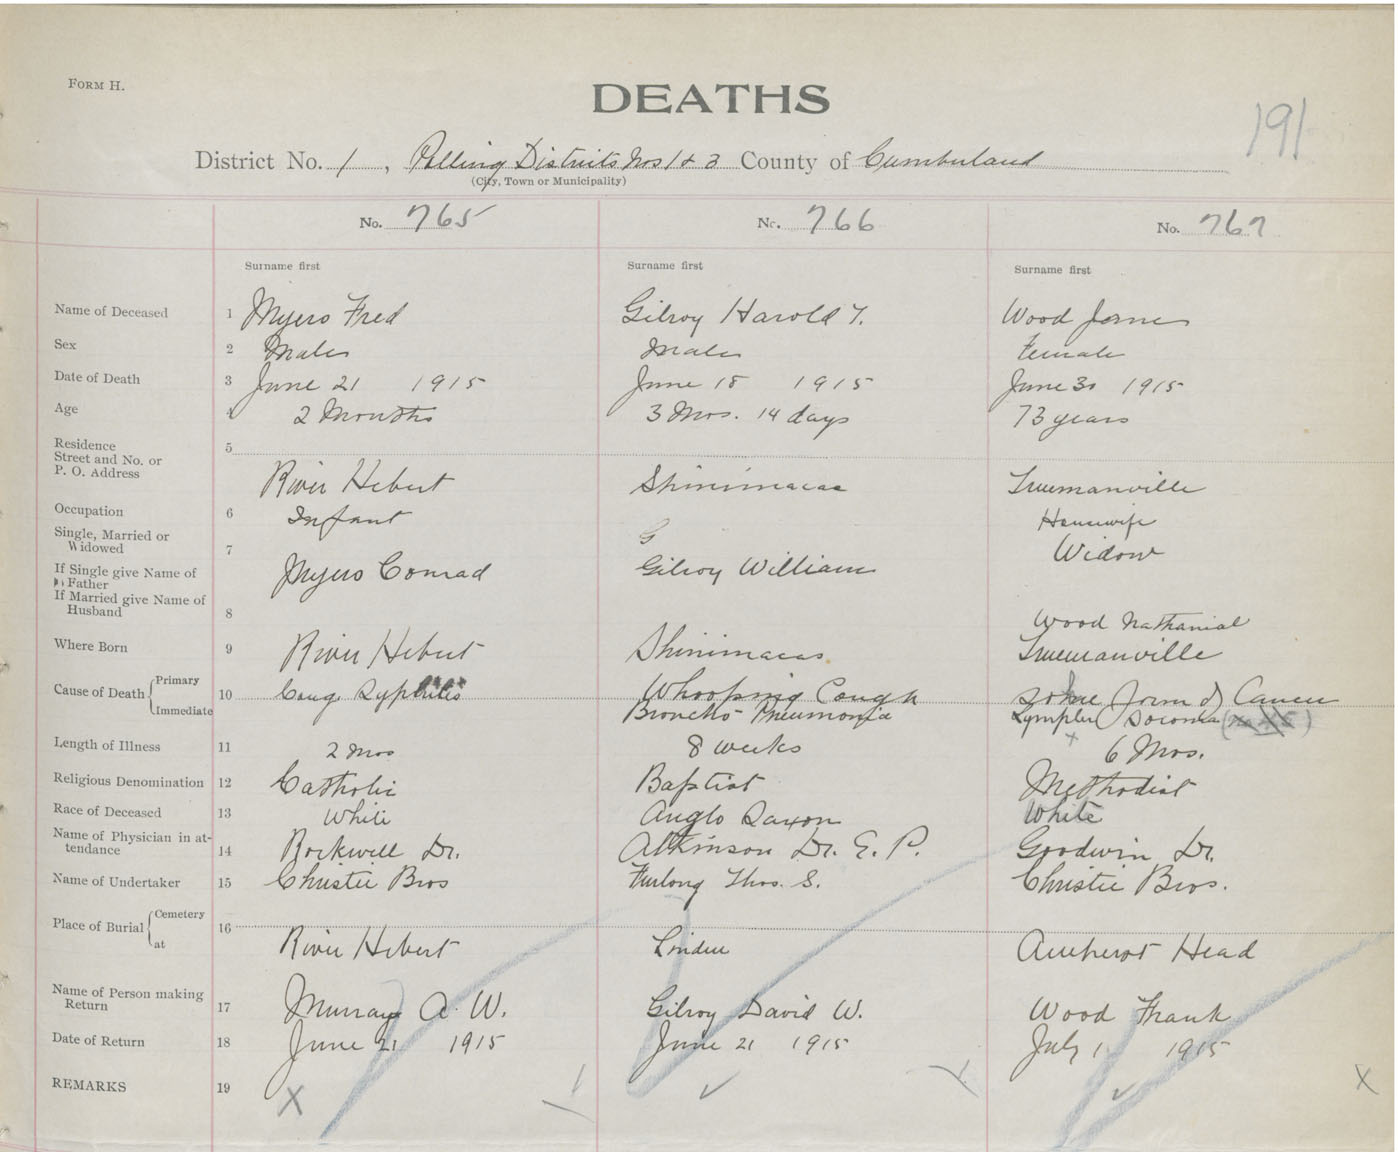 FORM H.
DEATHS
191
District No. 1, Polling Districts Nos 1 & 3 County of Cumberland
(City, Town or Municipality)
No. 765 No. 766 No. 767
Surname first Surname first Surname first
Name of Deceased 1 Myers Fred Gilroy Harold T. Wood
Sex 2 Male Male Female
Date of Death 3 June 21 1915 June 18 1915 June 30 1915
Age 4 2 Months 3 Mos. 14 days 73 years
Residence 5
Street and No. or
P. O. Address River Hebert Shinimacas Truemanville
Occupation 6 Infant Housewife
Single, Married or
Widowed 7 G Widow
If Single give Name of
Father Myers Conrad Gilroy William
If Married give Name of
Husband 8 Wood Nathanial
Where Born 9 River Hebert Shinimacas Truemanville
Cause of Death Primary 10 Cong Syphilis Whooping Cough some form of Cancer
Immediate Broncho-Pneumonia
Length of Illness 11 2 mos 8 weeks 6 Mos.
Religious Denomination 12 Catholic Baptist Methodist
Race of Deceased 13 White Anglo Saxon White
Name of Physician in at-
tendance 14 Rockwell Dr. Atkinson Dr. E. P. Goodwin Dr.
Name of Undertaker 15 Christie Bros Furlong Thos. S. Christie Bros.
Place of Burial Cemetery 16
at River Hebert Linden Amherst Head
Name of Person making
Return 17 Murray A. W. Gilroy David W. Wood Frank
Date of Return 18 June 21 1915 June 21 1915 July 1 1915
REMARKS 19 X